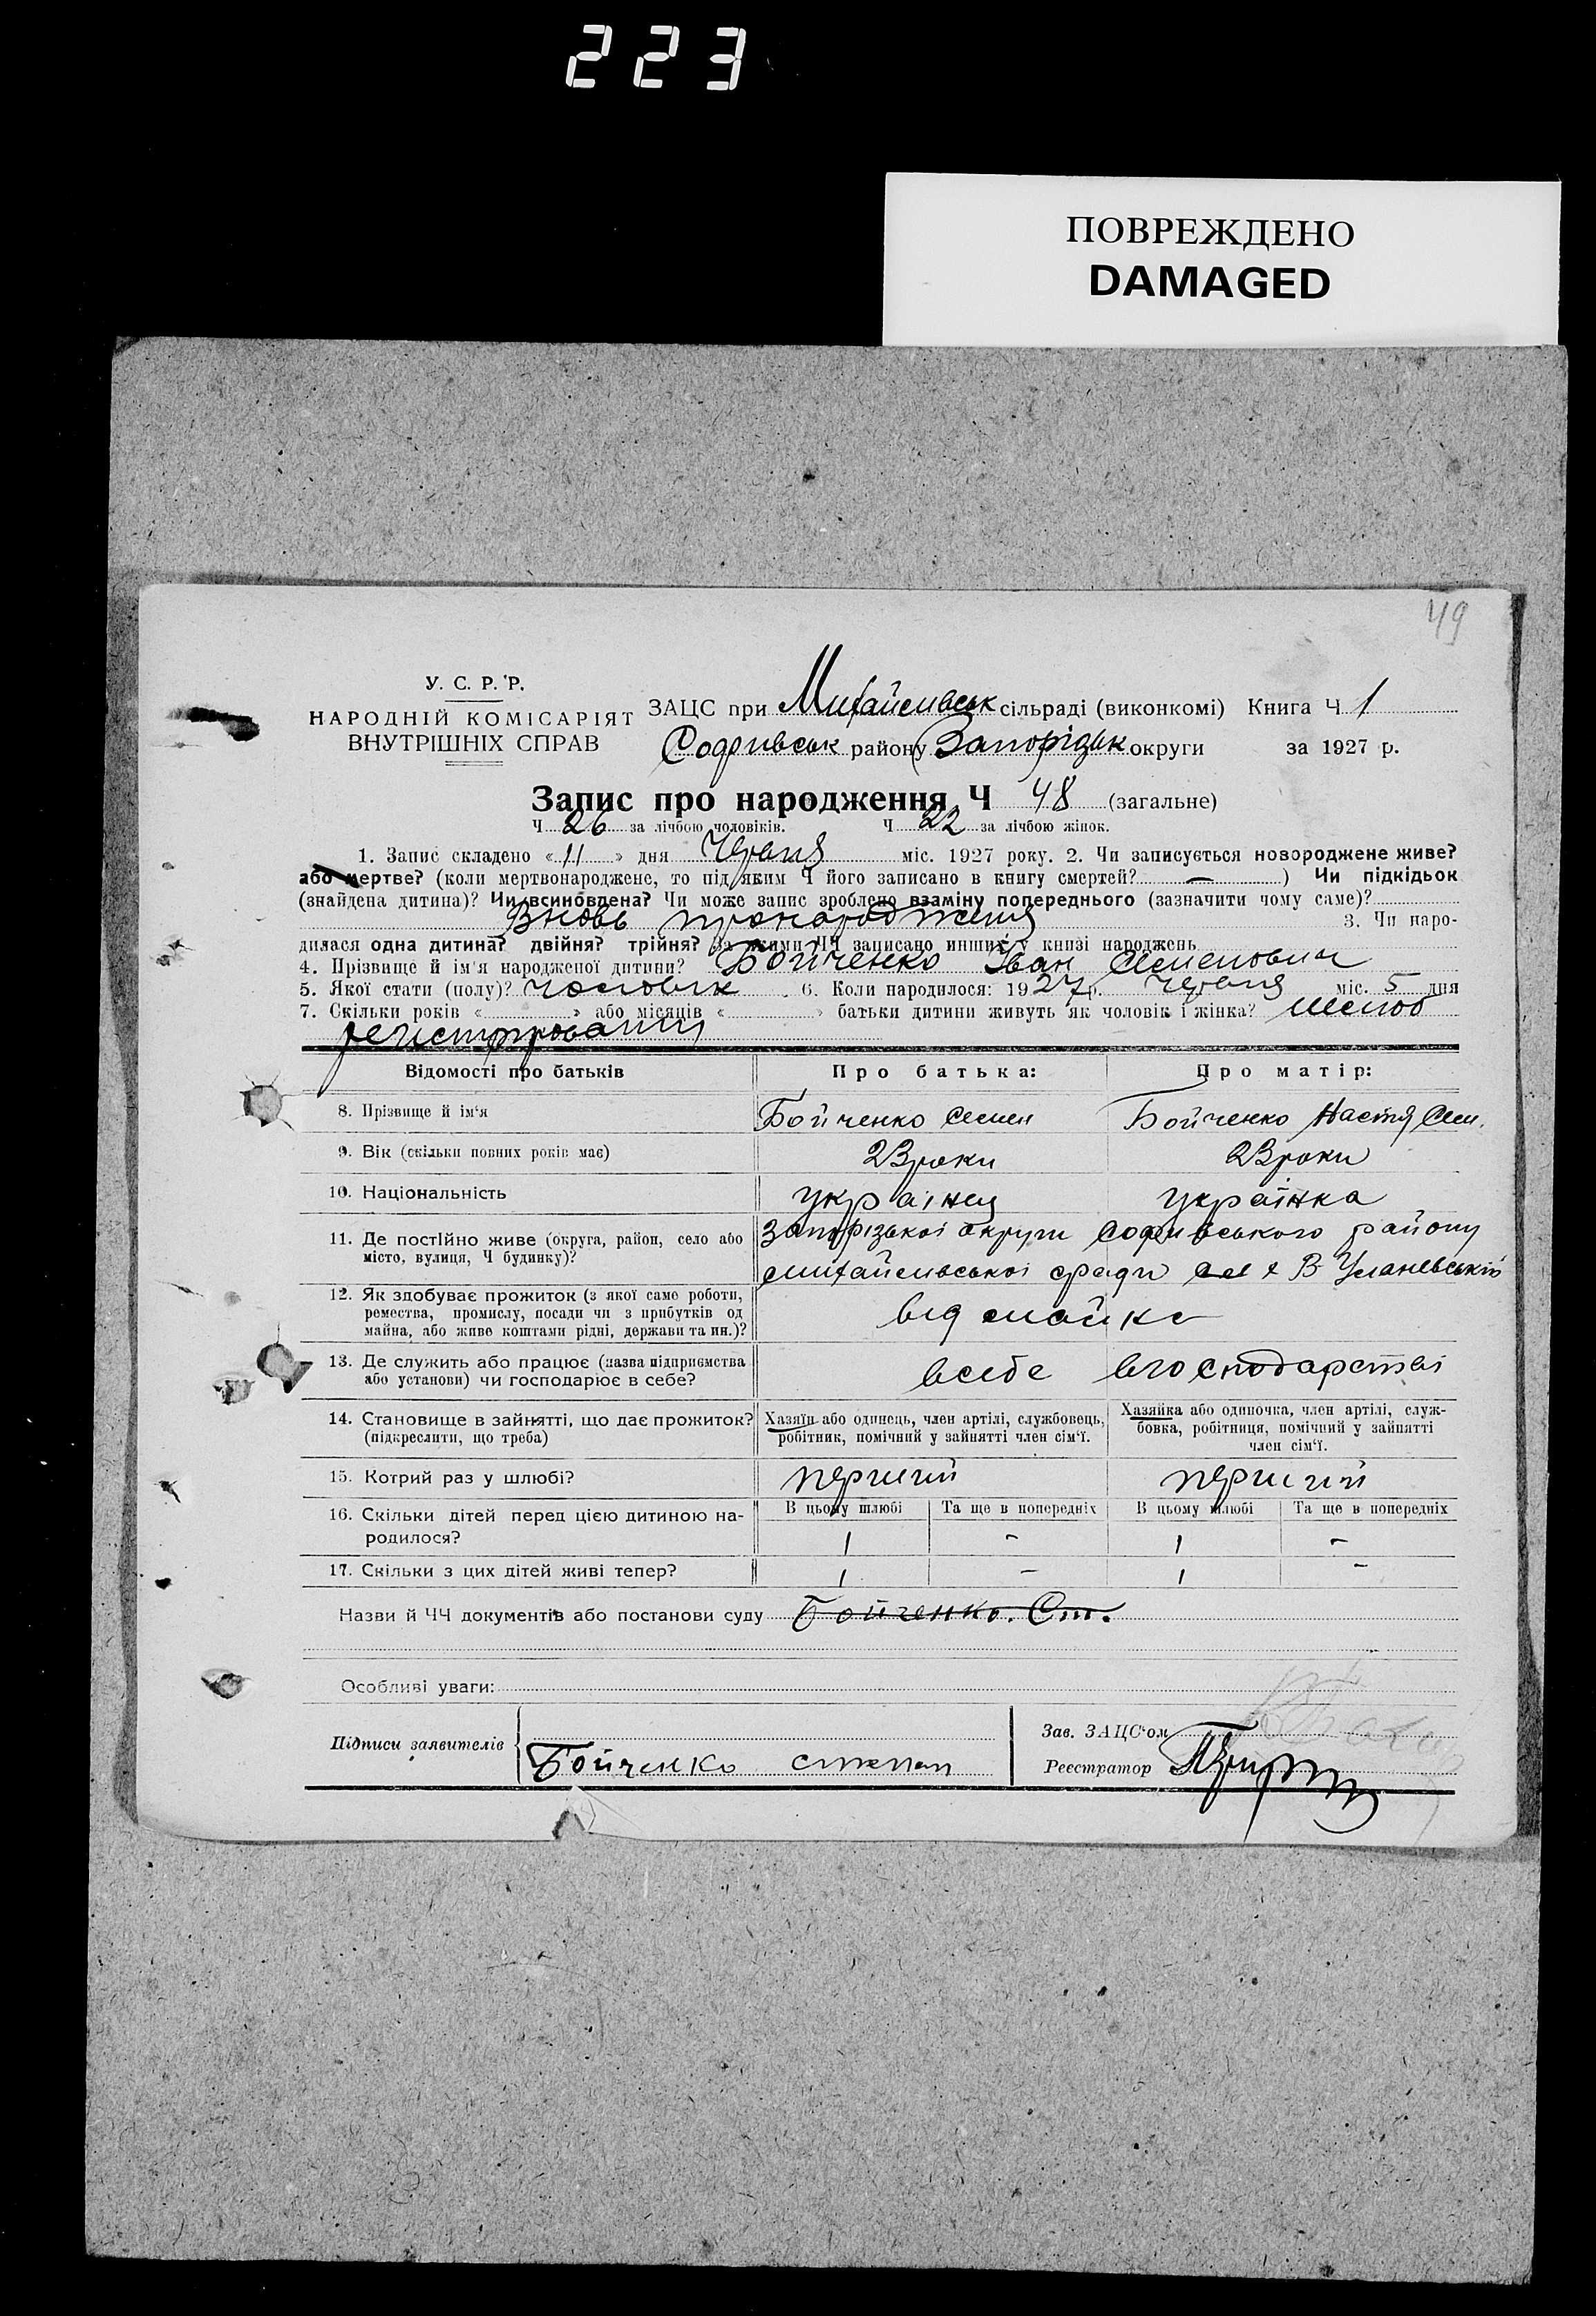 223
ПОВРЕЖДЕНО
DAMAGED
49
У. С. Р. Р.
НАРОДНІЙ КОМІСАРІЯТ
ВНУТРІШНІХ СПРАВ
ЗАЦС при Михайлівськ сільраді (виконкомі) Книга Ч 1
Софиівськ району Запорізьк округи за 1927 р.
Запис про народження Ч 48 (загальне)
Ч 26 за лічбою чоловіків. Ч 22 за лічбою жінок.
1. Запис складено «11» дня Червня міс. 1927 року. 2. Чи записується новороджене живе?
або мертве? (коли мертвонароджене, то під яким Ч його записано в книгу смертей? — ) Чи підкідьок
(знайдена дитина)? Чи всиновлена? Чи може запис зроблено взаміну попереднього (зазначити чому саме)?
Вновь 3. Чи наро-
дилася одна дитина? двійня? трійня? За якими ЧЧ записано инших у книзі народжень
4. Прізвище й ім'я народженої дитини? Бойченко Іван Семенович
5. Якої стати (полу)? чоловік 6. Коли народилося: 1927 р. Червня міс. 5 дня
7. Скільки років « » або місяців « » батьки дитини живуть як чоловік і жінка? шслюб
Відомості про батьків Про батька: Про матір:
8. Прізвище й ім'я Бойченко Семен Бойченко Настя Сем.
9. Вік (скільки повних років має) 23 роки 23 роки
10. Національність українец українка
11. Де постійно живе (округа, район, село або Запорізької округи Софиівського району
місто, вулиця, Ч будинку)? Михайлівської с/ради
12. Як здобуває прожиток (з якої саме роботи,
ремества, промислу, посади чи з прибутків од
майна, або живе коштами рідні, держави та ин.)? від
13. Де служить або працює (назва підприємства
або установи) чи господарює в себе? всебе вгосподарстві
14. Становище в зайнятті, що дає прожиток? Хазяїн або одинець, член артілі, службовець, Хазяйка або одиночка, член артілі, служ-
(підкреслити, що треба) робітник, помічний у зайнятті член сім'ї. бовка, робітниця, помічний у зайнятті
член сім'ї.
15. Котрий раз у шлюбі? перший перший
16. Скільки дітей перед цією дитиною на- В цьому шлюбі Та ще в попередніх В цьому шлюбі Та ще в попередніх
родилося? 1 - 1 -
17. Скільки з цих дітей живі тепер? 1 - 1 -
Назви й ЧЧ документів або постанови суду Бойченко. Ст.
Особливі уваги:
Підписи заявителів Бойченко степан
Зав. ЗАЦС'ом
Реестратор